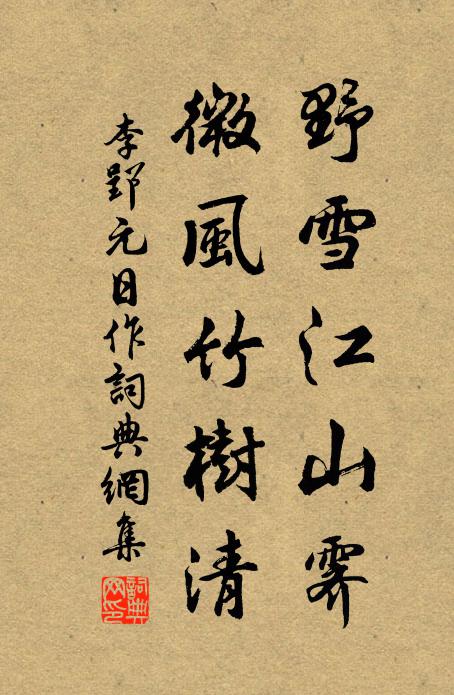 野雪江山霽
微風竹樹清
李郢元日作詞典網集
詞典网印